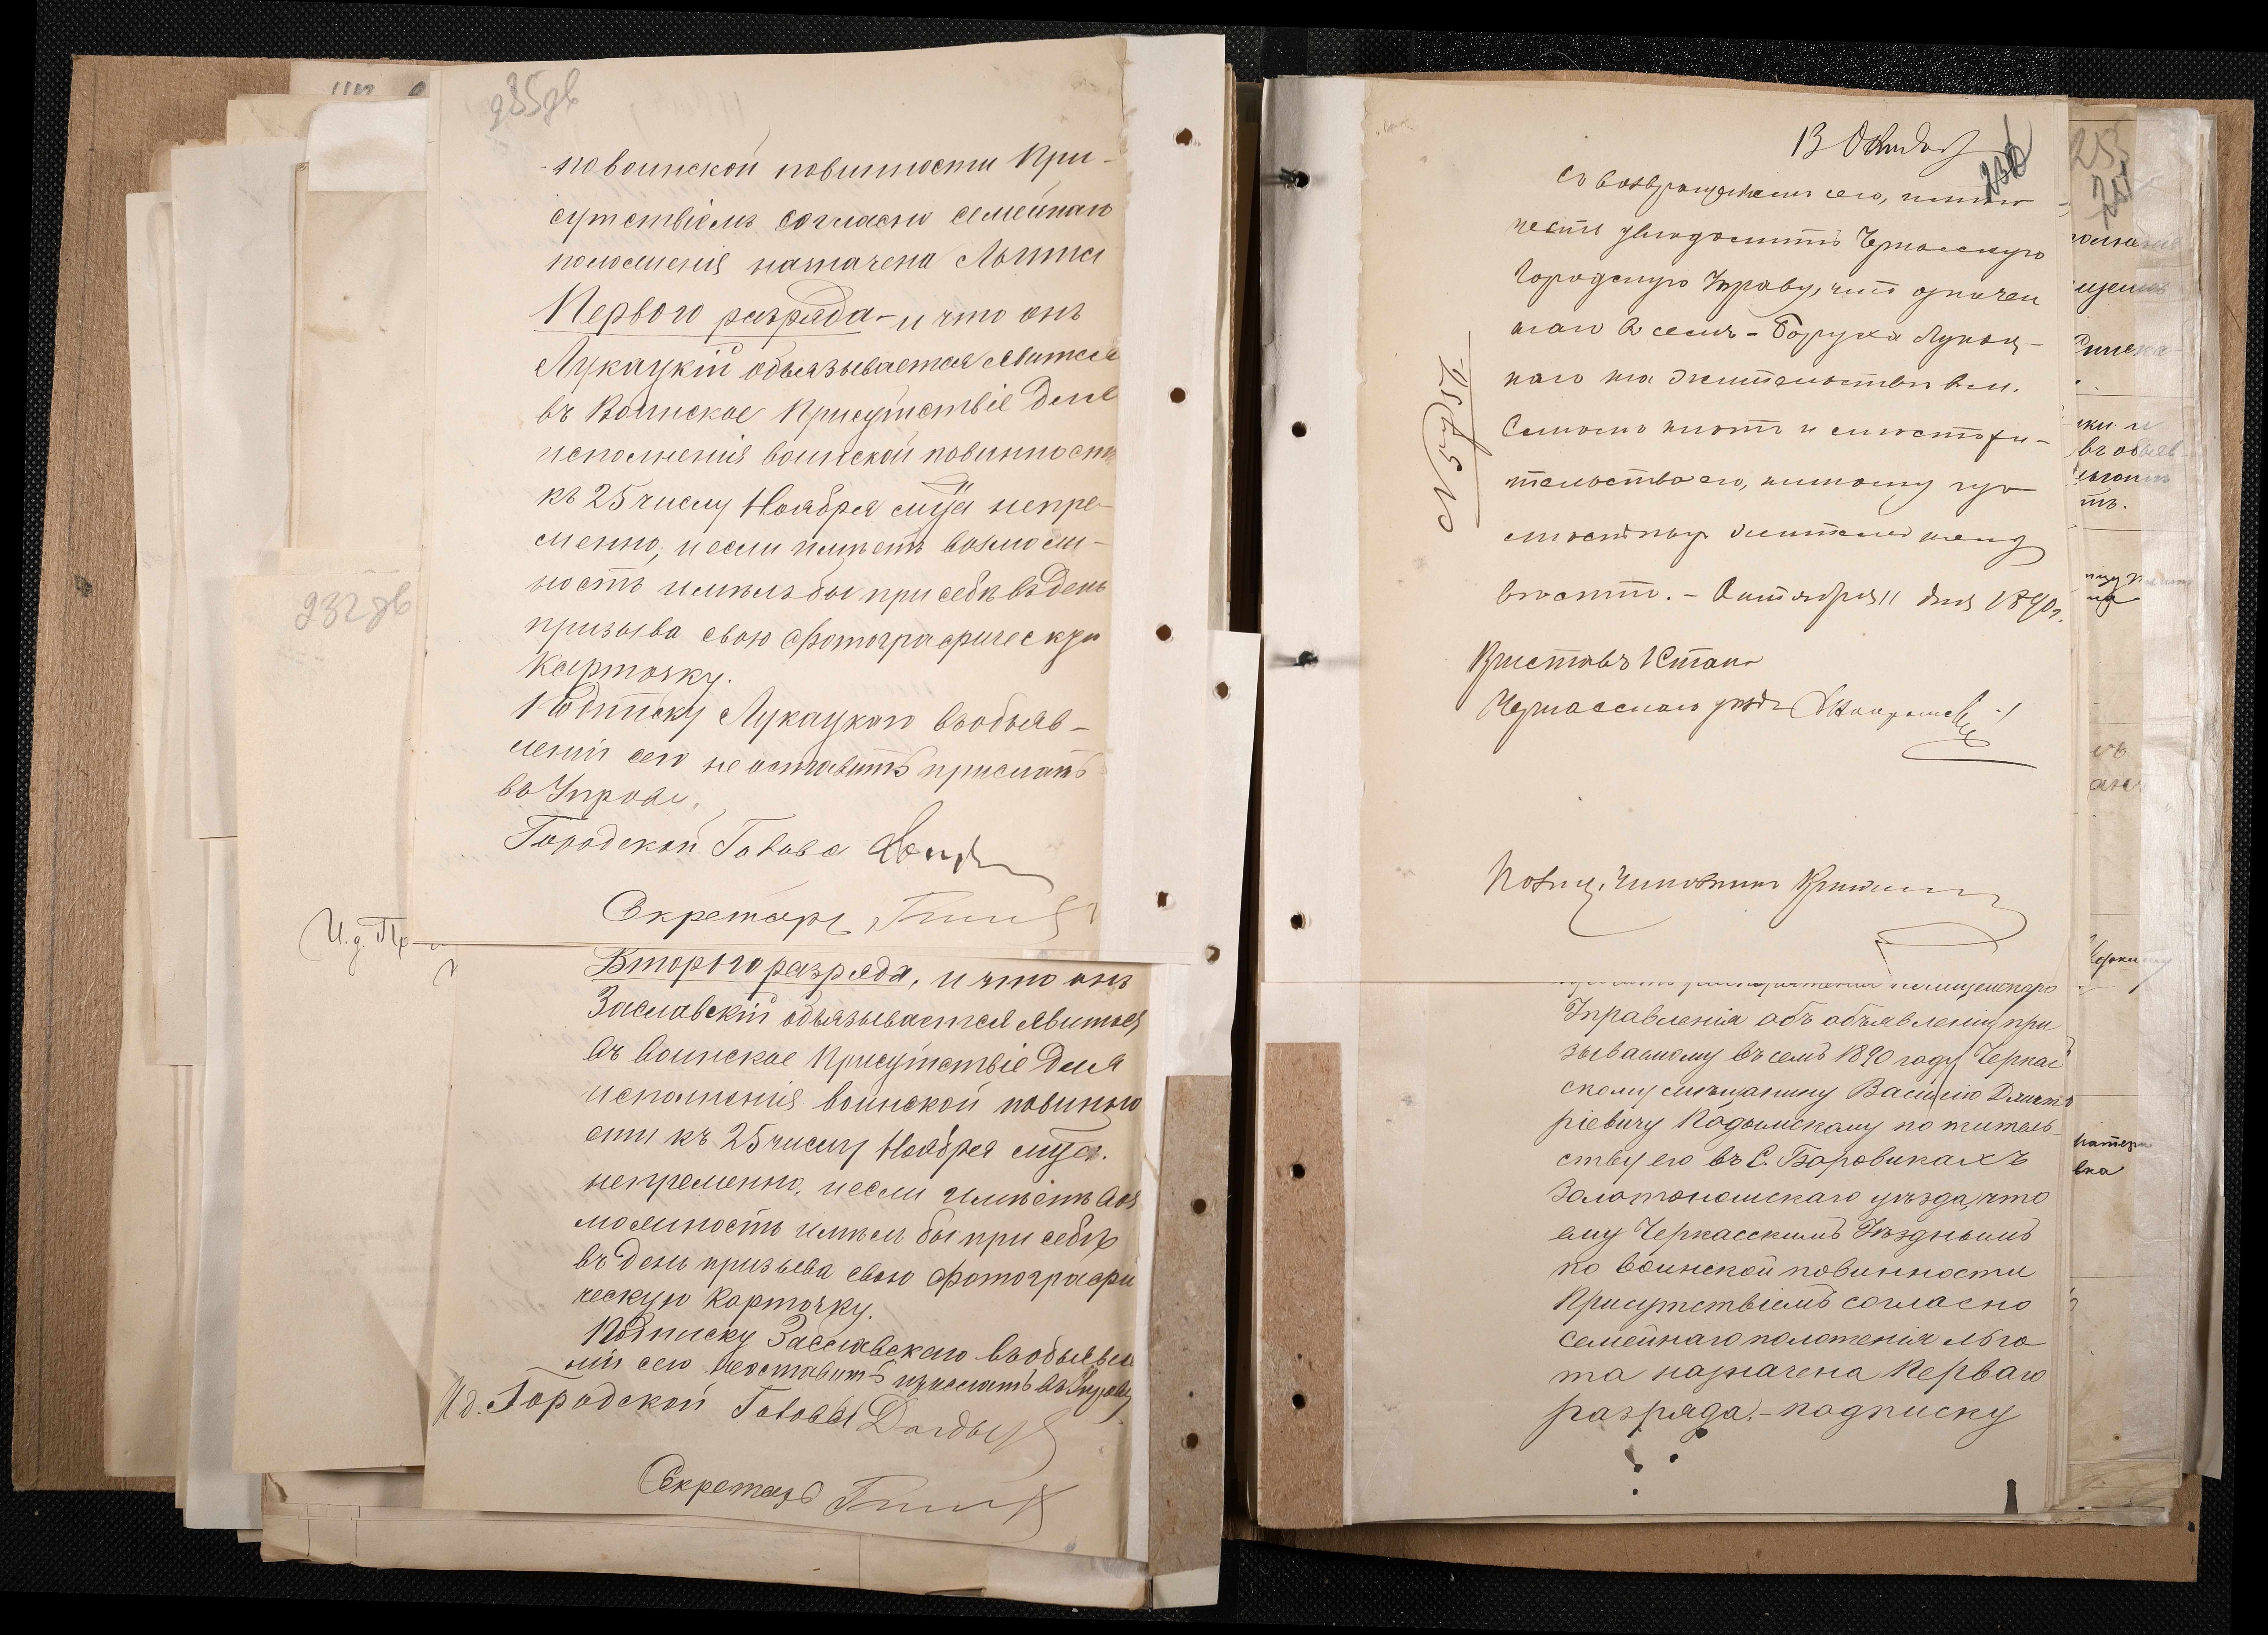 235 об
по воинской повинности При-
сутствіемъ согласно семейнаго
положенія назначена Льгота
Перваго разряда - и что онъ
Лукацкій объязывается явится
въ Воинское Присутствіе для
исполненія воинской повинности
къ 25 числу Ноября м-ца непре-
менно, и если имѣетъ возмож-
ность имѣлъ бы при себѣ въ день
призыва свою фотографическую
карточку.
Подписку Лукацкого въ объяв-
леніи сего не оставитъ прислать
въ Управу.
Городской Голова
Секретарь
232 об
И. д. Пр
Второго разряда, и что онъ
Заславскій объязывается явиться
въ воинское Присутствіе для
исполненія воинской повинно
сти къ 25 числу Ноября м-ца.
непременно, и если имѣетъ воз
можность имѣлъ бы при себѣ
въ день призыва свою фотографи
ческую карточку.
Подписку Заславскаго въ объявле
ніи сего не оставитъ прислать въ Управу
И. д. Городской Головы
Секретарь
13
236
Съ возвращеніемъ сего, имѣю
честь увѣдомить Черкасскую
Городскую Управу, что означен
наго въ семъ - Боруха Лукац-
каго на жительствѣ въ м.
Смѣломъ нѣтъ и мѣстожи-
тельство его, никому изъ
мѣстныхъ жителей неиз
вѣстно. - Октября 11 дня 1890 г.
Приставъ 1 Стана
Черкасскаго уѣзда
№ 5757
Полиц. Чиновникъ
Управленія объ объявленіи при
зываемому въ семъ 1890 году Черкас
скому мѣщанину Василію Дмит
ріевичу Кодымскому по житель-
ству его въ С. Боровикахъ
Золотоношскаго уѣзда, что
ему Черкасскимъ Уѣзднымъ
по воинской повинности
Присутствіемъ согласно
семейнаго положенія льго
та назначена Перваго
разряда. - подписку